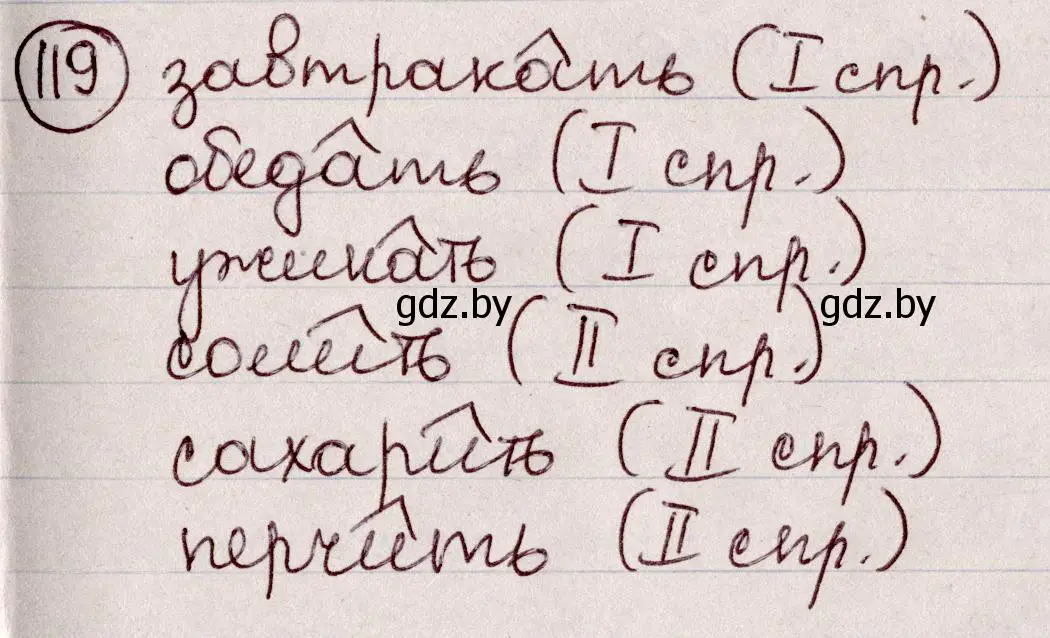 119 завтракать (I спр.)
обедать (I спр.)
ужинать (I спр.)
gdz.by gdz.by
солить (II спр.)
сахарить (II спр.)
перчить (II спр.)